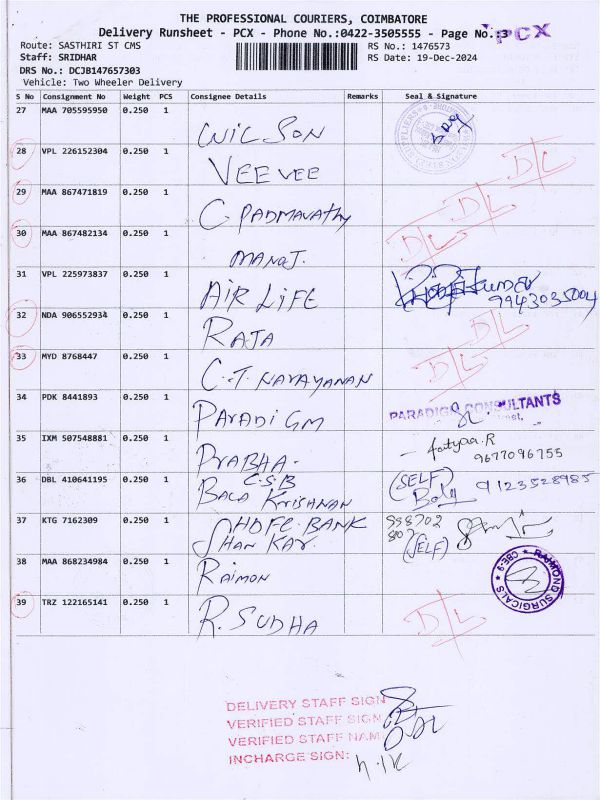 THE PROFESSIONAL COURIERS, COIMBATORE
Delivery Runsheet - PCX - Phone No.:0422-3505555 - Page No.:3 PCX
Route: SASTHIRI ST CMS RS No.: 1476573
Staff: SRIDHAR RS Date: 19-Dec-2024
DRS No.: DCJB147657303
Vehicle: Two Wheeler Delivery
S No Consignment No Weight PCS Consignee Details Remarks Seal & Signature
27 MAA 705595950 0.250 1
WILSON
28 VPL 226152304 0.250 1
VEEVEE D/L
29 MAA 867471819 0.250 1
C. PADMAVATHY D/L
30 MAA 867482134 0.250 1
MANOJ. D/L
31 VPL 225973837 0.250 1
AIR LIFE 9943035004
32 NDA 906552934 0.250 1
RAJA D/L
33 MYD 8768447 0.250 1
C.T. NARAYANAN D/L
34 PDK 8441893 0.250 1
PARADIGM PARADIGM CONSULTANTS
35 IXM 507548881 0.250 1
PRABHA. 9677096755
36 DBL 410641195 0.250 1 C.S.B (SELF)
BALA KRISHNAN Baly 9123528985
37 KTG 7162309 0.250 1 HDFC BANK
SHAN KAR. (SELF)
38 MAA 868234984 0.250 1
RAIMON RAIMOND SURGICALS CBE-9
39 TRZ 122165141 0.250 1
R. SUDHA D/L
DELIVERY STAFF SIGN
VERIFIED STAFF SIGN
VERIFIED STAFF NAM
INCHARGE SIGN: